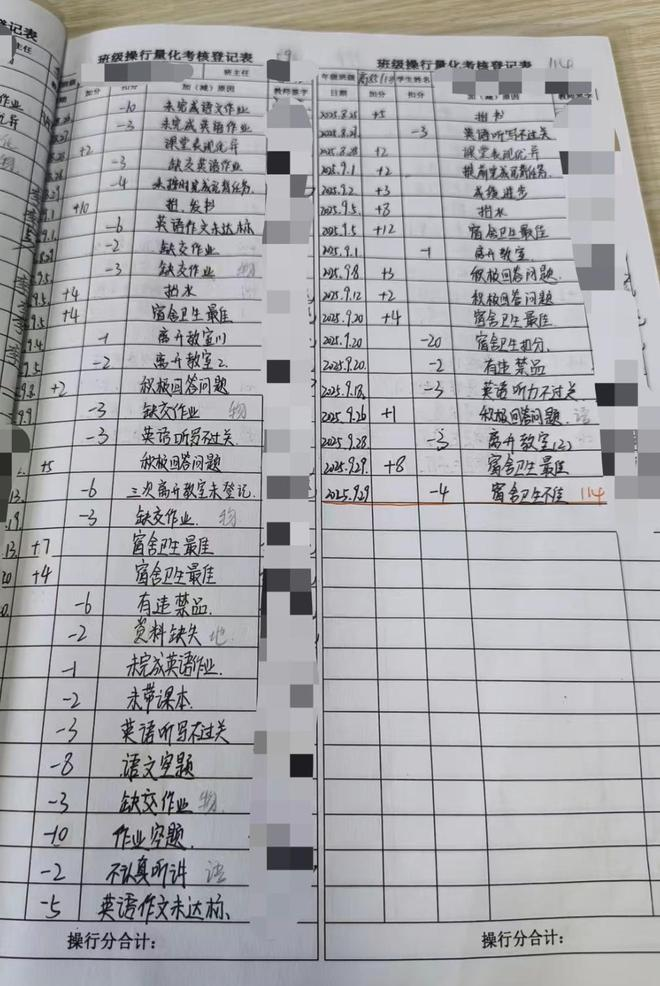 班级操行量化考核登记表
班主任
加分 扣分 加（减）原因 教师签字
-10 未完成语文作业
-3 未完成英语作业
+2 课堂表现优异
-3 缺交英语作业
-4 未按时完成背书任务
+10 搬、发书
-6 英语作文未达标
-2 缺交作业
-3 缺交作业 物
+4 抬水
+4 宿舍卫生最佳
-1 离开教室
-2 离开教室2
+2 积极回答问题
-3 缺交作业 物
-3 英语听写不过关
+5 积极回答问题
-6 三次离开教室未登记
-3 缺交作业 物
+7 宿舍卫生最佳
+4 宿舍卫生最佳
-6 有违禁品
-2 资料缺失 地
-1 未完成英语作业
-2 未带课本
-3 英语听写不过关
-8 语文空题
-3 缺交作业 物
-10 作业空题
-2 不认真听讲 语
-5 英语作文未达标
操行分合计：
班级操行量化考核登记表 114
年级班级 学生姓名
日期 加分 扣分 加（减）原因 教师签字
2025.8.25 +5 搬书
-3 英语听写不过关
2025.8.28 +2 课堂表现优异
2025.9.1 +2 提前完成背书任务
2025.9.2 +3 成绩进步
2025.9.5 +8 抬水
2025.9.5 +12 宿舍卫生最佳
2025.9.1 -1 离开教室
2025.9.8 +3 积极回答问题
2025.9.12 +2 积极回答问题
2025.9.20 +4 宿舍卫生最佳
2025.9.20 -20 宿舍卫生扣分
2025.9.20 -2 有违禁品
2025.9.18 -3 英语听力不过关
2025.9.26 +1 积极回答问题 语
2025.9.28 -3 离开教室(2)
2025.9.29 +8 宿舍卫生最佳
2025.9.29 -4 宿舍卫生不佳 114
操行分合计：